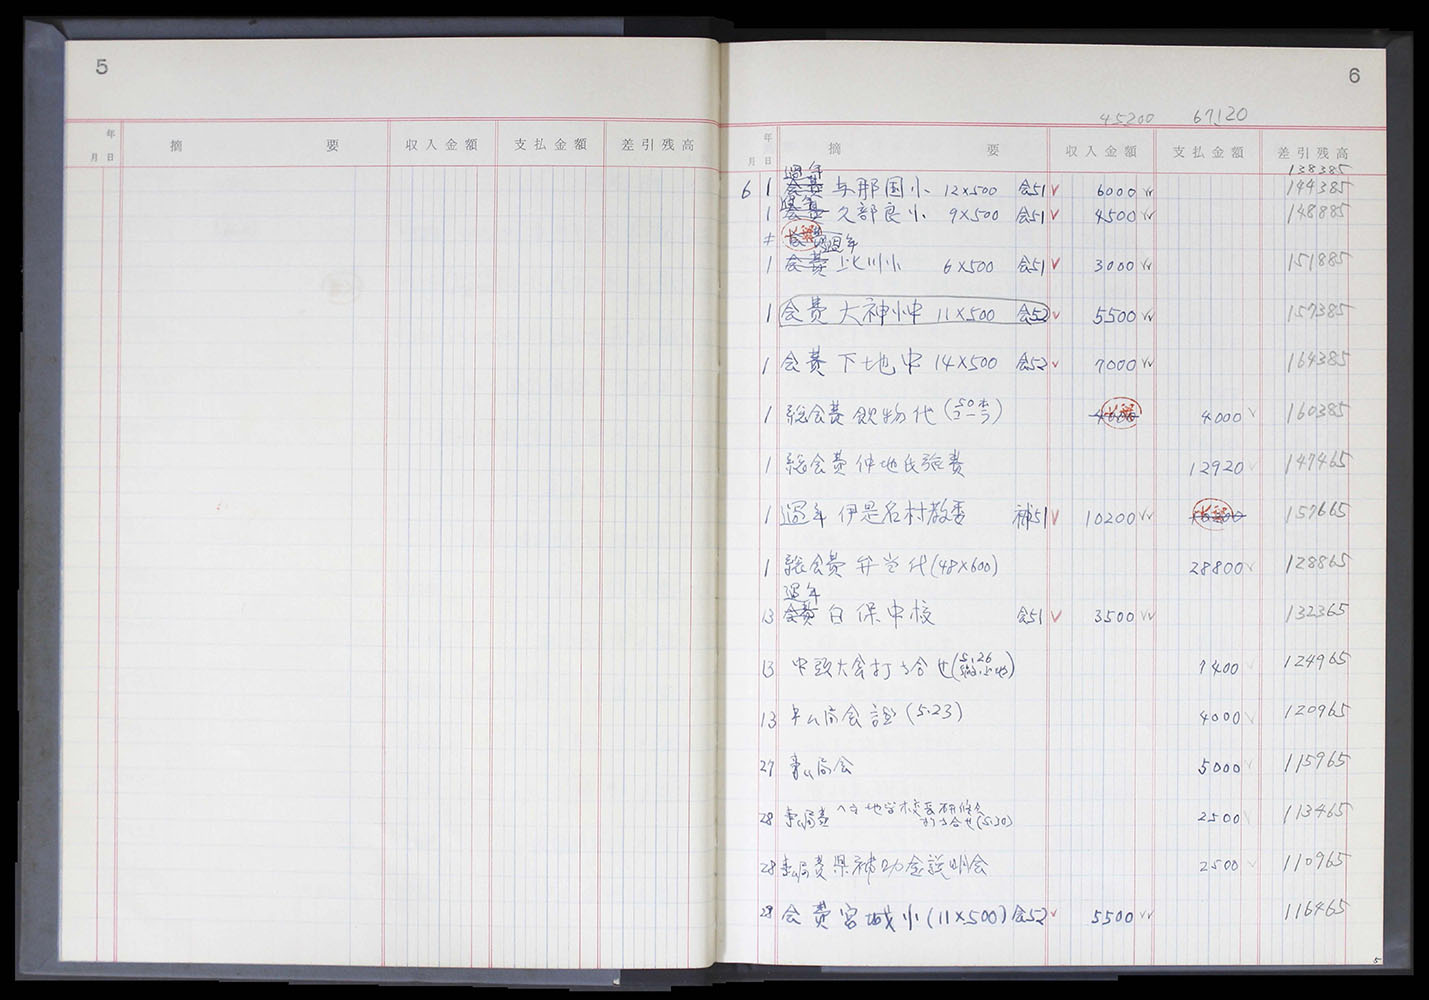 5
年
月 日
摘 要
収入金額
支払金額
差引残高
6
45200 67120
年
月 日
摘 要
収入金額
支払金額
差引残高
138385
過年
6 1 会費 与那国小 12×500 会51 6000 144385
過年
1 会費 久部良小 9×500 会51 4500 148885
過年
1 会費 比川小 6×500 会51 3000 151885
1 会費 大神小中 11×500 会52 5500 157385
1 会費 下地中 14×500 会52 7000 164385
1 総会費 飲物代 (50本 コーラ) 4000 4000 160385
1 総会費 仲地氏 費 12920 147465
1 過年 伊是名村教委 補51 10200 10200 157665
1 総会費 弁当代 (48×600) 28800 128865
過年
13 会費 白保中校 会51 3500 132365
13 中頭大会打ち合せ (5.26) 7400 124965
13 局会 (5.23) 4000 120965
27 事ム局会 5000 115965
28 事ム局費 へき地学校長研修会 打ち合せ (5.30) 2500 113465
28 事ム局費 県補助金説明会 2500 110965
29 会費 宮城小 (11×500) 会52 5500 116465
5